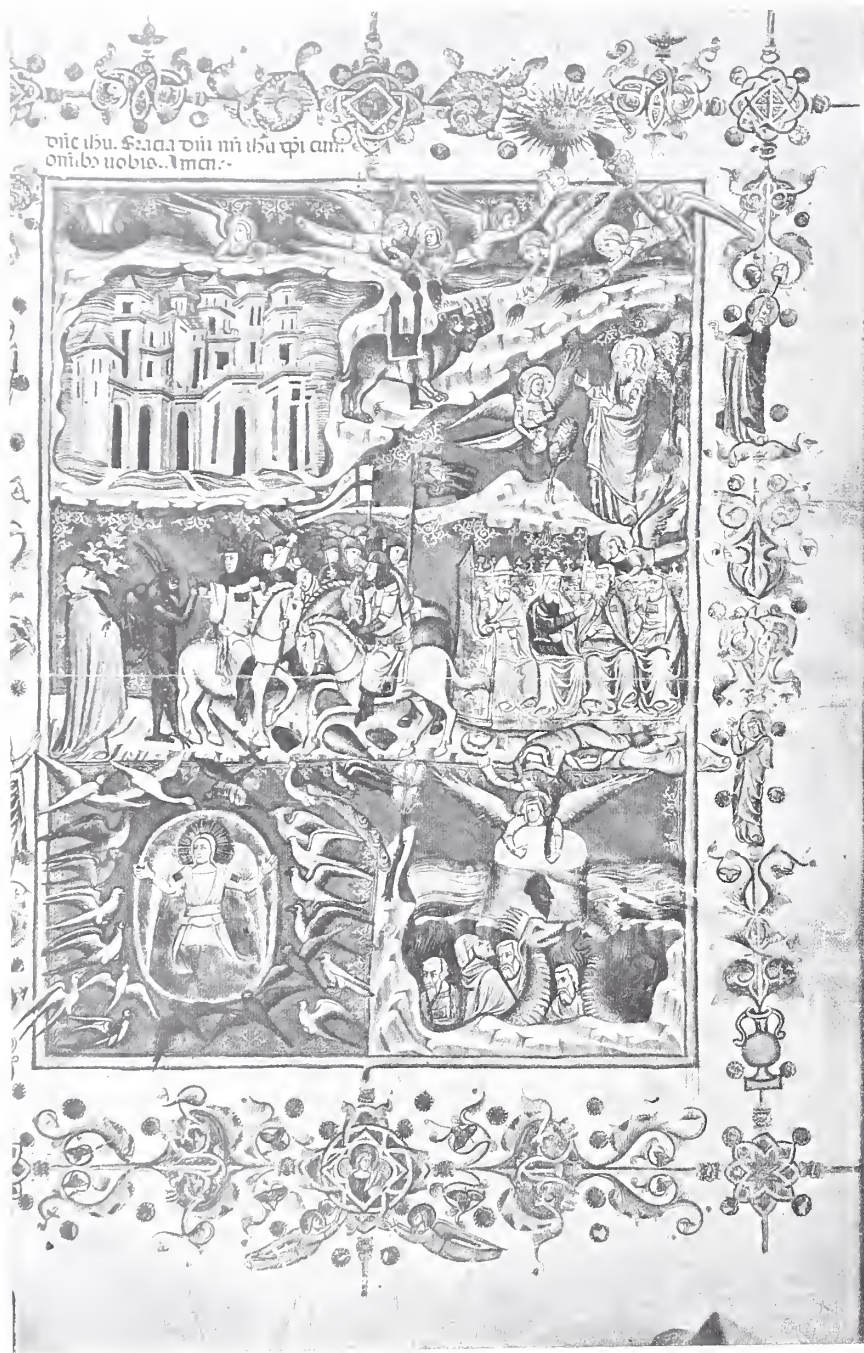 dn̄e ih̄u. Gracia dn̄i nr̄i ih̄u xp̄i cum
omībꝫ uobis. Amen:·